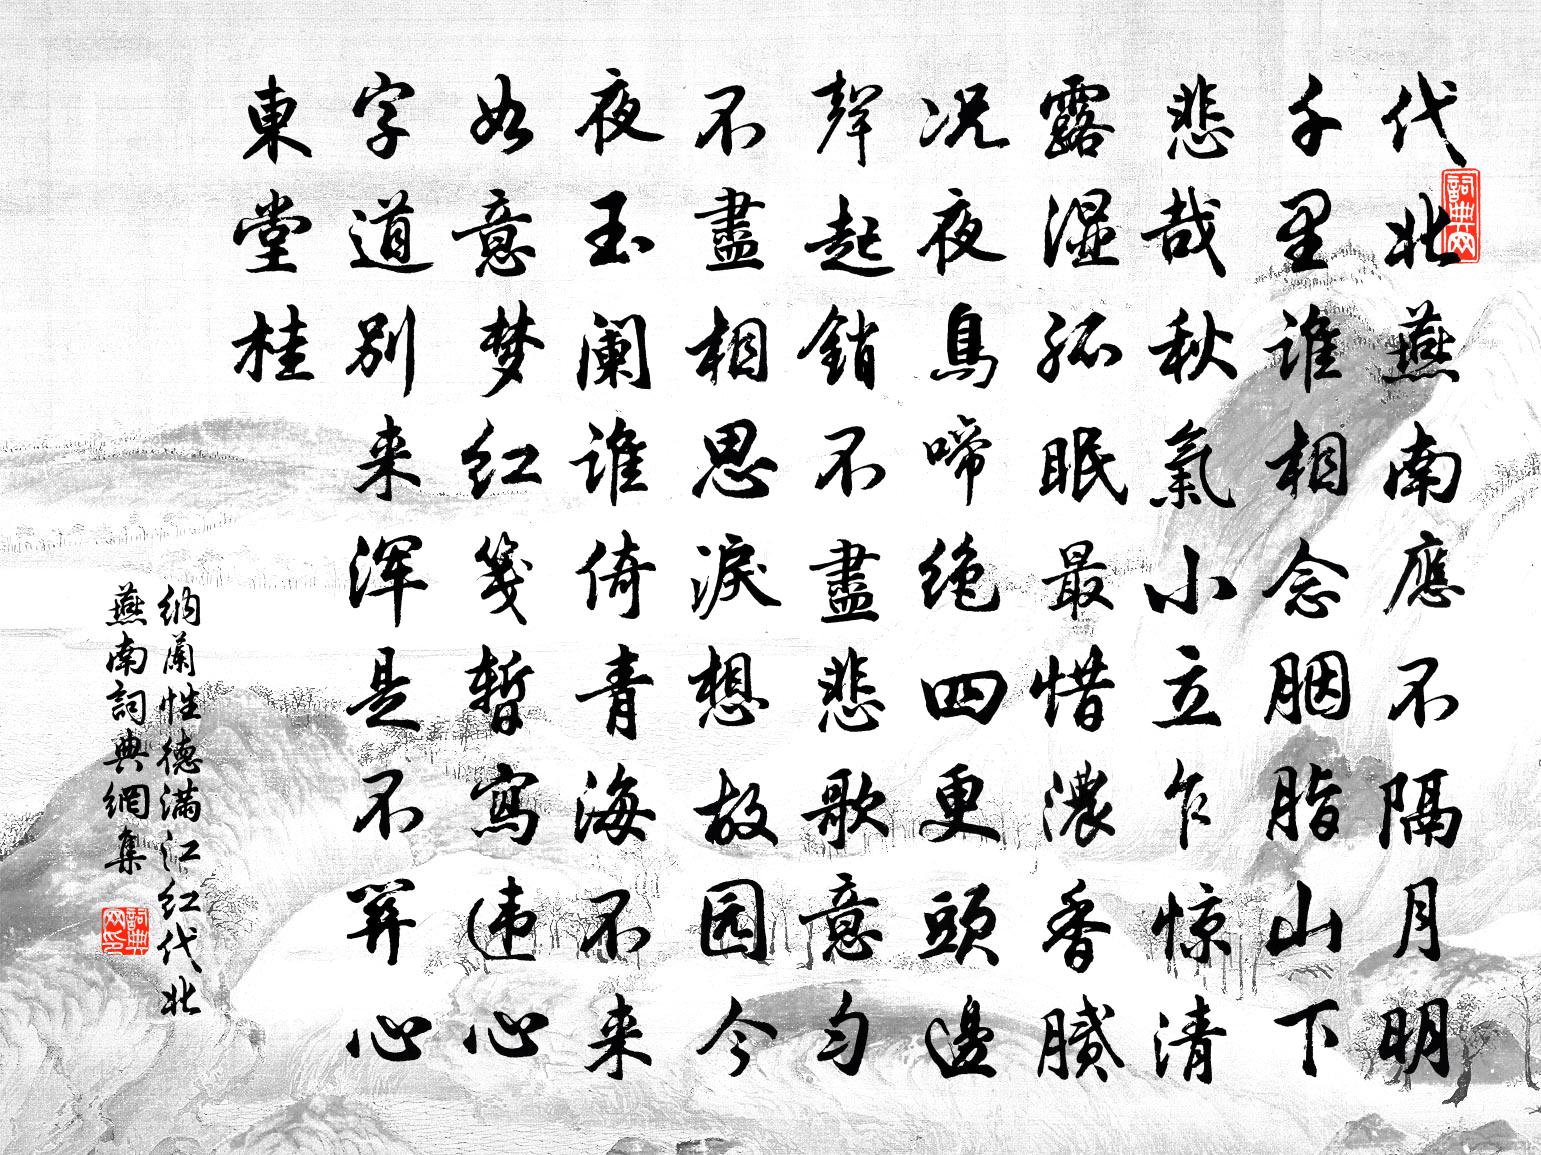 代北燕南應不隔月明
千里誰相念胭脂山下
悲哉秋氣小立乍惊清
露湿孤眠最惜濃香膩
况夜鳥啼绝四更頭邊
聲起銷不盡悲歌意匀
不盡相思淚想故园今
夜玉阑誰倚青海不来
如意梦红箋暫寫违心
字道別来浑是不關心
東堂桂
納蘭性德滿江红代北
燕南詞典網集
詞典网
詞典网印